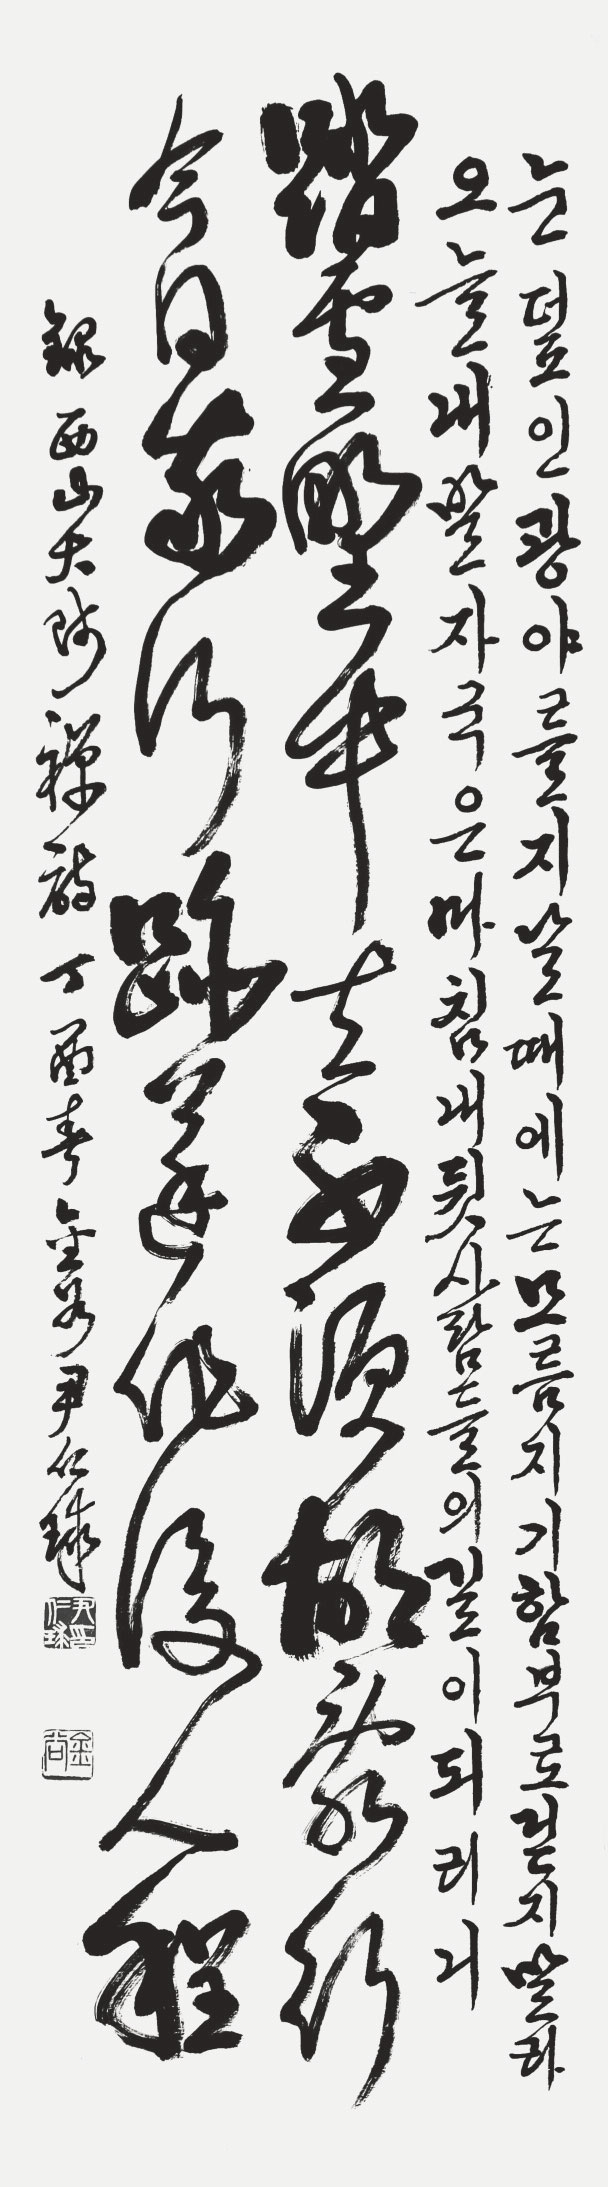 눈 덮인 광야를 지날 때에는 모름지기 함부로 걷지 말라
오늘 내 발자국은 마침내 뒷사람들의 길이 되리니
踏雪野中去不須胡亂行
今日我行跡遂作後人程
錄西山大師禪詩丁酉春金尹仁球